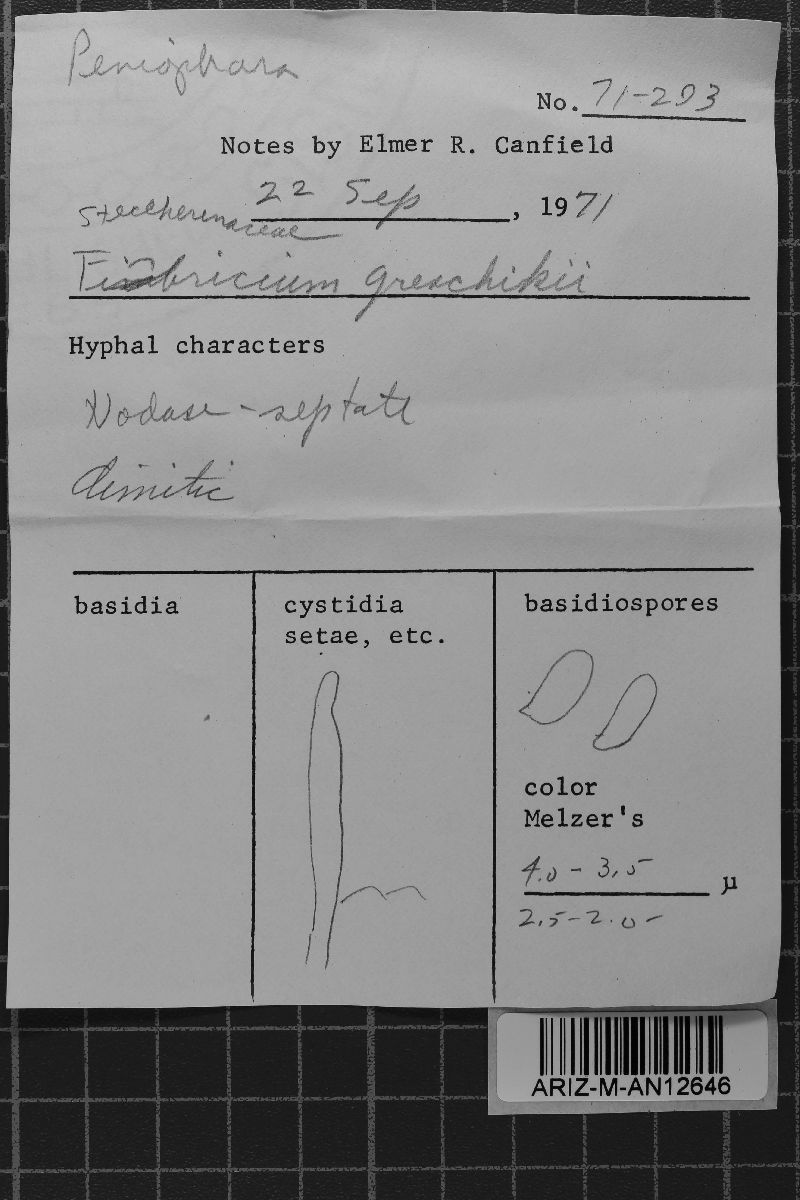 Peniophara
No. 71-293
Notes by Elmer R. Canfield
22 Sep, 1971
Steccherinaceae
Fimbricium greschikii
Hyphal characters
Nodase-septate
dimitic
basidia
cystidia
setae, etc.
basidiospores
color
Melzer's
4.0 - 3.5 µ
2.5-2.0-
ARIZ-M-AN12646